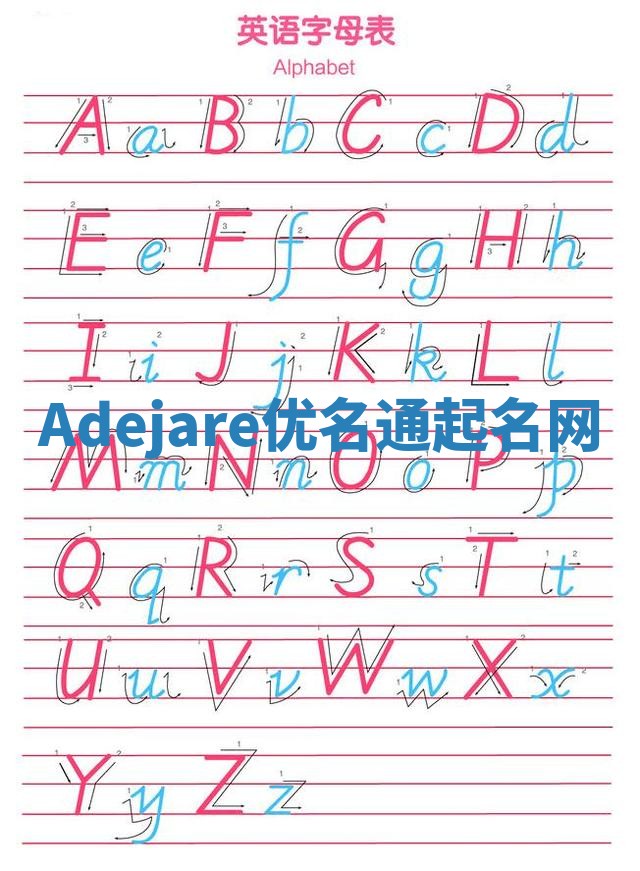 英语字母表
Alphabet
A a B b C c D d
E e F f G g H h
I i J j K k L l
Adejare优名通起名网
M m N n O o P p
Q q R r S s T t
U u V v W w X x
Y y Z z